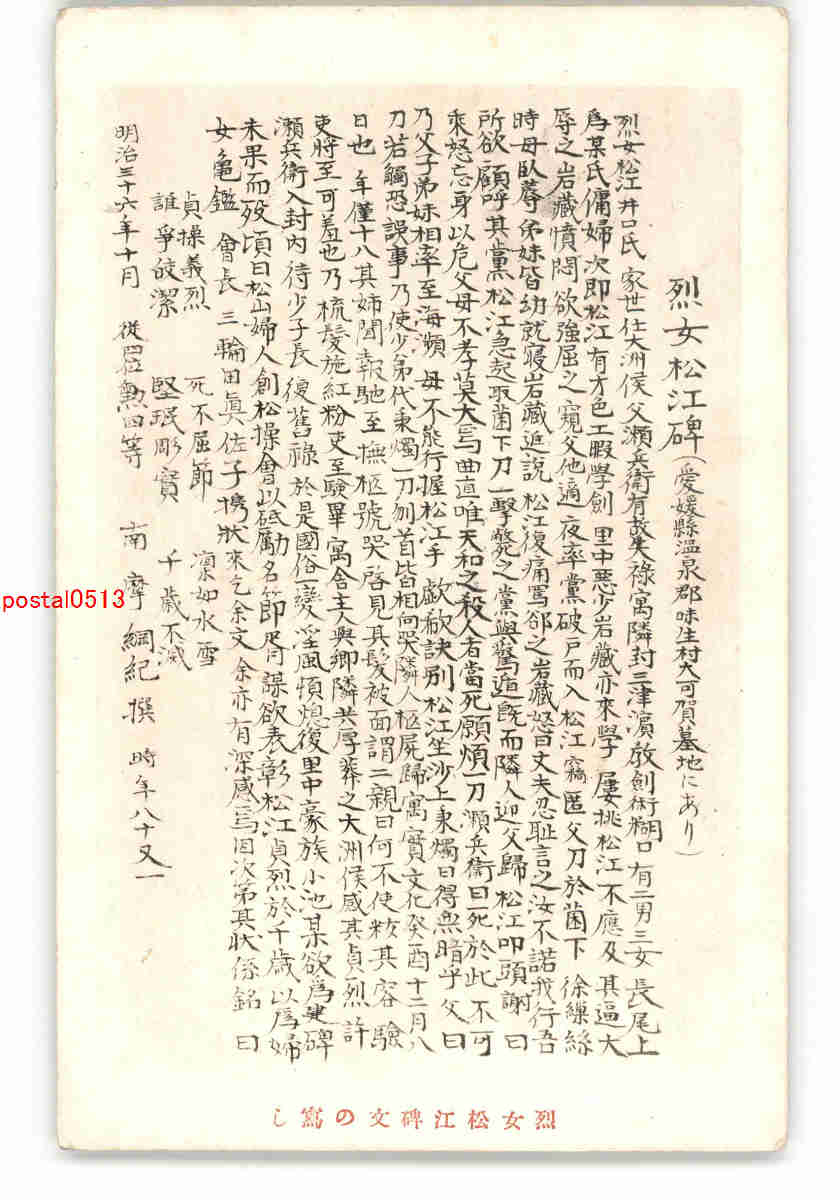 烈女松江碑(愛媛縣溫泉郡味生村大可賀墓地にあり)
烈女松江井口氏家世仕大洲侯父瀬兵衛有故失祿寓隣封三津濵教劍術糊口有二男三女長尾上
爲某氏傭婦次即松江有才色工暇學劍里中惡少岩藏亦來學屢挑松江不應及其逼大
辱之岩藏憤悶欲強屈之窺父他適夜率黨破戸而入松江竊匿父刀於茵下徐繅絲
時母臥蓐弟妹皆幼就寢岩藏進説松江復痛罵郤之岩藏怒曰丈夫忍耻言之汝不諾我行吾
所欲顧呼其黨松江急起取茵下刀一擊斃之黨與驚遁既而隣人迎父歸松江叩頭謝曰
乘怒忘身以危父母不孝莫大焉曲直唯天和之殺人者當死願煩一刀瀬兵衛曰死於此不可
乃父子弟妹相率至海瀕母不能行握松江手歔欷訣別松江坐沙上秉燭曰得無暗乎父曰
刀若觸恐誤事乃使少弟代秉燭一刀刎首皆相向哭隣人柩屍歸寓實文化癸酉十二月八
日也年僅十八其姉聞報馳至撫柩號哭啓見其髮被面謂二親曰何不使粧其容驗
吏將至可羞也乃梳髮施紅粉吏至驗畢寓舍主人與鄉隣共厚葬之大洲侯感其貞烈許
瀬兵衛入封内待少子長復舊祿於是國俗一變淫風頓熄復里中豪族小池某欲爲建碑
未果而歿頃日松山婦人創松操會以砥勵名節即胥謀欲表彰松江貞烈於千歳以爲婦
女龜鑑會長三輪田眞佐子携狀來乞余文余亦有深感焉因次第其狀係銘曰
貞操義烈 死不屈節 凛如水雪
誰爭皎潔 堅珉彫實 千歳不滅
明治三十六年十月 從四位勲四等 南摩綱紀撰 時年八十又一
烈女松江碑文の寫し
postal0513